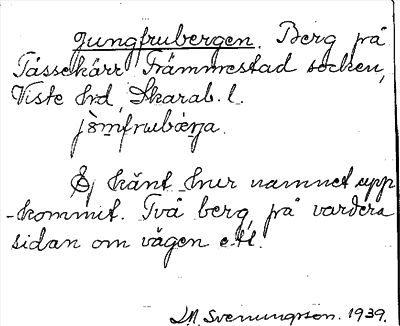 Jungfrubergen. Berg på
Tåssekärr Främmestad socken,
Viste hrd, Skarab. l.
Ej känt hur namnet upp
-kommit. Två berg, på vardera
sidan om vägen ett.
Svenungsson. 1939.